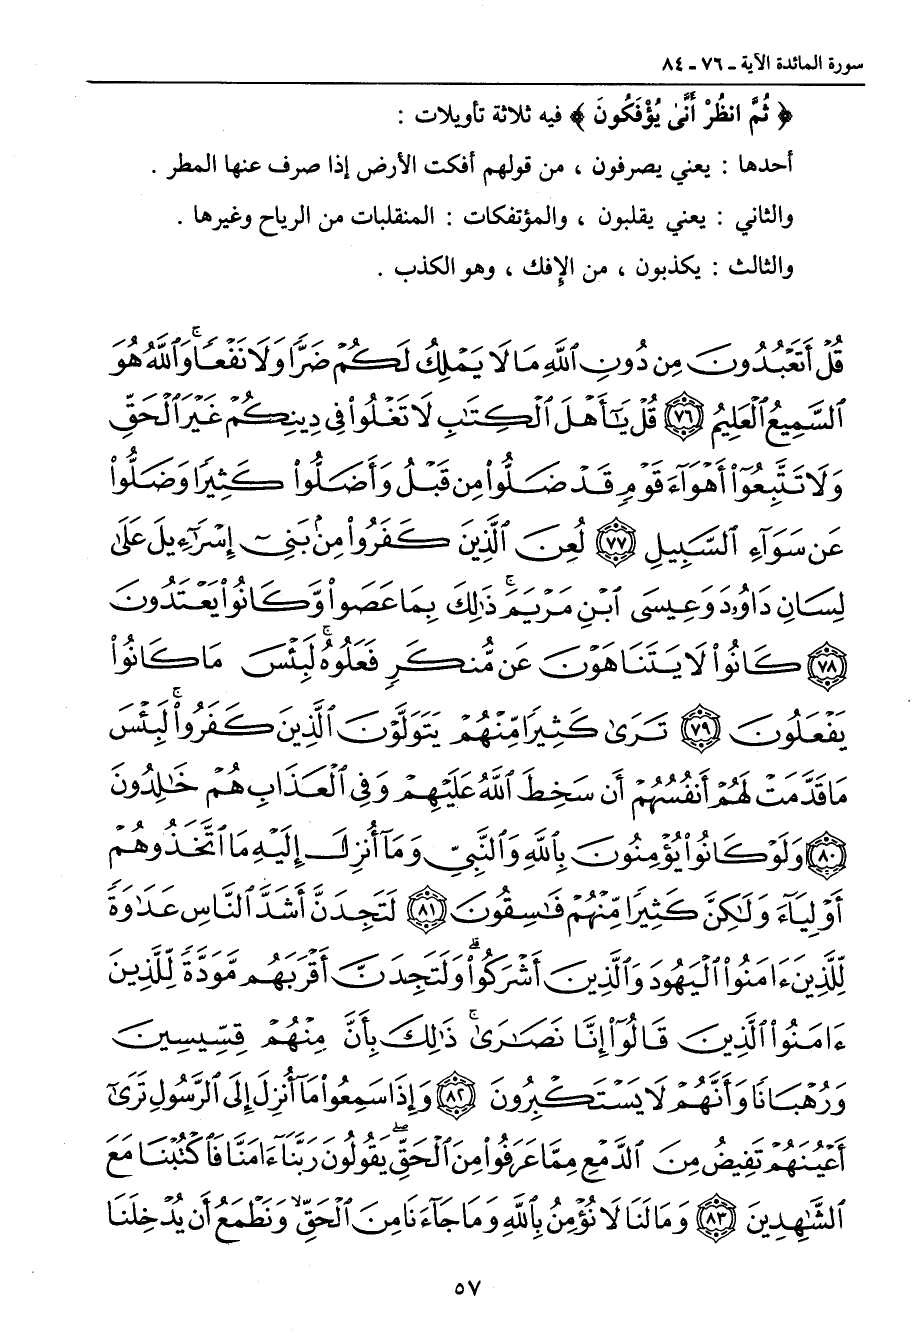 سورة المائدة الآية - ٧٦ - ٨٤
﴿ ثُمَّ انظُرْ أَنَّى يُؤْفَكُونَ ﴾ فيه ثلاثة تأويلات :
أحدها : يعني يصرفون ، من قولهم أفكت الأرض إذا صرف عنها المطر .
والثاني : يعني يقلبون ، والمؤتفكات : المنقلبات من الرياح وغيرها .
والثالث : يكذبون ، من الإفك ، وهو الكذب .
قُلْ أَتَعْبُدُونَ مِن دُونِ ٱللَّهِ مَا لَا يَمْلِكُ لَكُمْ ضَرًّا وَلَا نَفْعًا ۚ وَٱللَّهُ هُوَ
ٱلسَّمِيعُ ٱلْعَلِيمُ ﴿٧٦﴾ قُلْ يَٰٓأَهْلَ ٱلْكِتَٰبِ لَا تَغْلُوا۟ فِى دِينِكُمْ غَيْرَ ٱلْحَقِّ
وَلَا تَتَّبِعُوٓا۟ أَهْوَآءَ قَوْمٍ قَدْ ضَلُّوا۟ مِن قَبْلُ وَأَضَلُّوا۟ كَثِيرًا وَضَلُّوا۟
عَن سَوَآءِ ٱلسَّبِيلِ ﴿٧٧﴾ لُعِنَ ٱلَّذِينَ كَفَرُوا۟ مِنۢ بَنِىٓ إِسْرَٰٓءِيلَ عَلَىٰ
لِسَانِ دَاوُۥدَ وَعِيسَى ٱبْنِ مَرْيَمَ ۚ ذَٰلِكَ بِمَا عَصَوا۟ وَّكَانُوا۟ يَعْتَدُونَ
﴿٧٨﴾ كَانُوا۟ لَا يَتَنَاهَوْنَ عَن مُّنكَرٍ فَعَلُوهُ ۚ لَبِئْسَ مَا كَانُوا۟
يَفْعَلُونَ ﴿٧٩﴾ تَرَىٰ كَثِيرًا مِّنْهُمْ يَتَوَلَّوْنَ ٱلَّذِينَ كَفَرُوا۟ ۚ لَبِئْسَ
مَا قَدَّمَتْ لَهُمْ أَنفُسُهُمْ أَن سَخِطَ ٱللَّهُ عَلَيْهِمْ وَفِى ٱلْعَذَابِ هُمْ خَٰلِدُونَ
﴿٨٠﴾ وَلَوْ كَانُوا۟ يُؤْمِنُونَ بِٱللَّهِ وَٱلنَّبِىِّ وَمَآ أُنزِلَ إِلَيْهِ مَا ٱتَّخَذُوهُمْ
أَوْلِيَآءَ وَلَٰكِنَّ كَثِيرًا مِّنْهُمْ فَٰسِقُونَ ﴿٨١﴾ لَتَجِدَنَّ أَشَدَّ ٱلنَّاسِ عَدَٰوَةً
لِّلَّذِينَ ءَامَنُوا۟ ٱلْيَهُودَ وَٱلَّذِينَ أَشْرَكُوا۟ ۖ وَلَتَجِدَنَّ أَقْرَبَهُم مَّوَدَّةً لِّلَّذِينَ
ءَامَنُوا۟ ٱلَّذِينَ قَالُوٓا۟ إِنَّا نَصَٰرَىٰ ۚ ذَٰلِكَ بِأَنَّ مِنْهُمْ قِسِّيسِينَ
وَرُهْبَانًا وَأَنَّهُمْ لَا يَسْتَكْبِرُونَ ﴿٨٢﴾ وَإِذَا سَمِعُوا۟ مَآ أُنزِلَ إِلَى ٱلرَّسُولِ تَرَىٰٓ
أَعْيُنَهُمْ تَفِيضُ مِنَ ٱلدَّمْعِ مِمَّا عَرَفُوا۟ مِنَ ٱلْحَقِّ ۖ يَقُولُونَ رَبَّنَآ ءَامَنَّا فَٱكْتُبْنَا مَعَ
ٱلشَّٰهِدِينَ ﴿٨٣﴾ وَمَا لَنَا لَا نُؤْمِنُ بِٱللَّهِ وَمَا جَآءَنَا مِنَ ٱلْحَقِّ ۙ وَنَطْمَعُ أَن يُدْخِلَنَا
٥٧